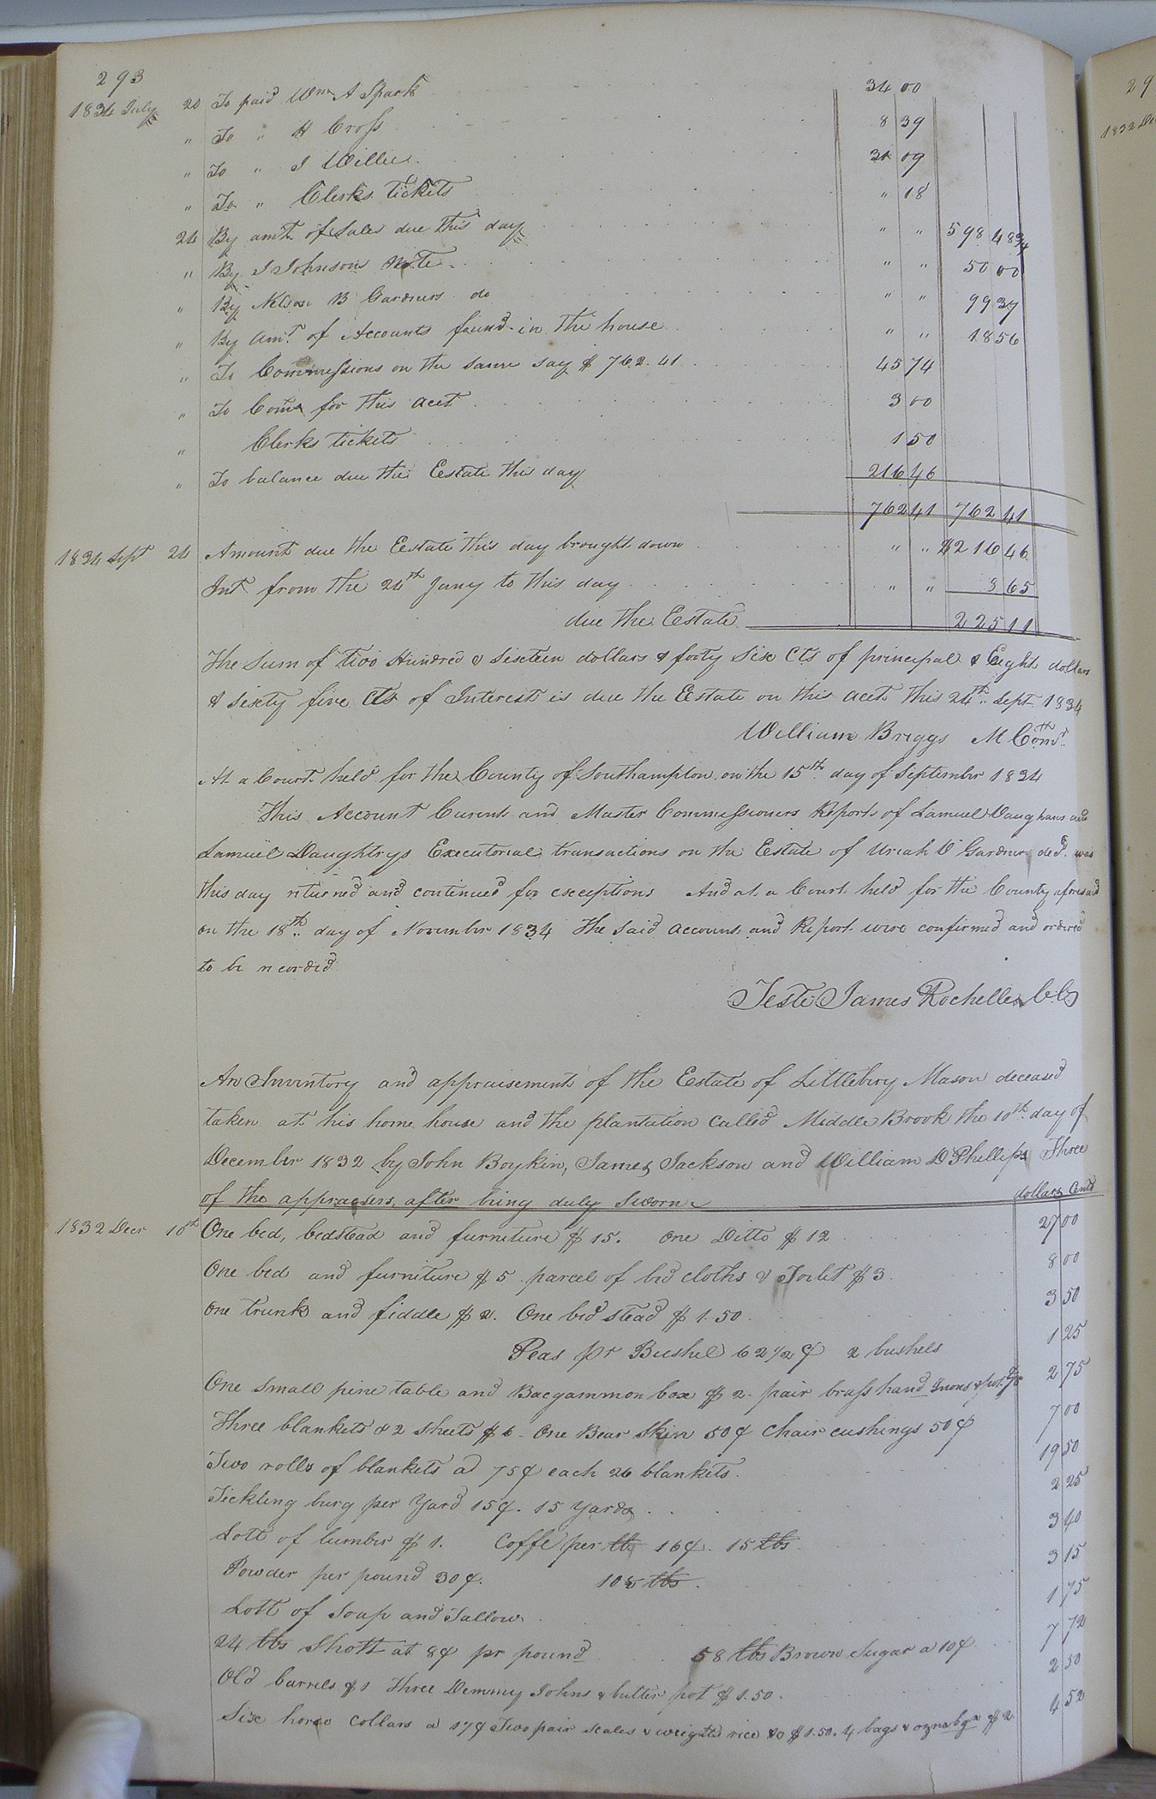 293
1834 July 20 To paid Wm A Spark 34 00
" To " H Cross 8 39
" To " J Willie 09
" To " Clerks tickets " 18
24 By amt. of Sales due this day " " 598 48 3/4
" By J Johnson Note " " 50 00
" By Nelson B Gardners do " " 99 37
" By Amt. of Accounts found in the house " " 18 56
" To Commissions on the same say $762.41 45 74
" To Coms for this acct 3 00
" Clerks tickets 1 50
" To balance due the Estate this day 216 46
762 41 762 41
1834 Sept 24 Amount due the Estate this day brought down " " $216 46
Int from the 24th Jany to this day " " 8 65
due the Estate 225 11
The Sum of two Hundred & Sixteen dollars & forty Six Cts of principal & Eight dollars
& Sixty five Cts of Interest is due the Estate on this acct. this 24th Sept 1834
William Briggs M Comr
At a Court held for the County of Southampton on the 15th day of September 1834
This Account Current and Master Commissioners Reports of Samuel Vaughans and
Samuel Daughtrys Executorial transactions on the Estate of Uriah D Gardner decd. was
this day returned and continued for exceptions And at a Court held for the County aforesaid
on the 18th day of November 1834 The Said accounts and Report were confirmed and ordered
to be recorded
Teste James Rochelle
An Inventory and appraisement of the Estate of Littlebury Mason deceased
taken at his home house and the plantation Called Middle Brook the 10th day of
December 1832 by John Boykin, James Jackson and William D Phellips Three
of the appraisers, after being duly Sworn
dollars Cents
1832 Decr 10th One bed, bedstead and furniture $15. One Ditto $12 27 00
One bed and furniture $5 parcel of bed cloths & Toilet $3 8 00
One trunk and fiddle $2. One bed stead $1.50 3 50
Peas pr Bushel 62 1/2 ¢ 2 bushels 1 25
One Small pine table and Bacgammon box $2 pair brass hand Irons 2 75
Three blankets & 2 Sheets $6 One Bear Skin 50¢ Chair cushings 50¢ 7 00
Two rolls of blankets ad 75¢ each 26 blankets. 19 50
Tickling burg per Yard 15¢. 15 Yards 2 25
Lott of lumber $1. Coffe per lb 16¢. 15 lbs 3 40
Powder per pound 30¢. lbs. 3 15
Lott of Soap and Tallow 1 75
24 lbs Shott at 8¢ pr pound 58 lbs Brown Sugar a 10¢ 7 72
Old barrels $1 Three Demmy Johns & butter pot $1.50. 2 50
Six horse Collars a 17¢ Two pair Scales & weights rice &c $1.50. 4 bags & oznabgs $2 4 52
29
1832 De